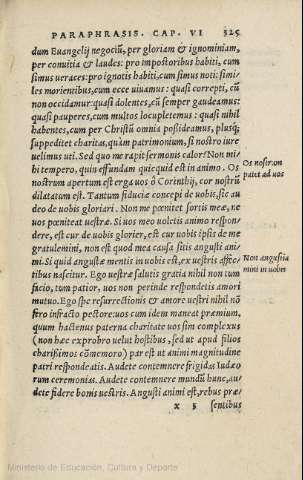 PARAPHRASIS. CAP. VI 325
dum Euangelij negociũ, per gloriam & ignominiam,
per conuitia & laudes: pro impostoribus habiti, cum
simus ueraces: pro ignotis habiti, cum simus noti: simi⸗
les morientibus, cum ecce uiuamus: quasi correpti, cũ
non occidamur: quasi dolentes, cũ semper gaudeamus:
quasi pauperes, cum multos locupletemus: quasi nihil
habentes, cum per Christũ omnia possideamus, plusq́;
suppeditet charitas, quàm patrimonium, si nostro iure
uelimus uti. Sed quo me rapit sermonis calor? Non mi
hi tempero, quin effundam quicquid est in animo. Os
nostrum apertum est erga uos ô Corinthij, cor nostrũ
dilatatum est. Tantum fiduciæ concepi de uobis, sic au⸗
deo de uobis gloriari. Non me pœnitet sortis meæ, ne
uos pœniteat uestræ. Si uos meo uoletis animo respon⸗
dere, est cur de uobis glorier, est cur uobis ipsis de me
gratulemini, non est quòd mea causa sitis angusti ani⸗
mi. Si quid angustæ mentis in uobis est, ex uestris affec⸗
tibus nascitur. Ego uestræ salutis gratia nihil non tum
facio, tum patior, uos non perinde respondetis amori
mutuo. Ego spe resurrectionis & amore uestri nihil nõ
fero infracto pectore: uos cum idem maneat præmium,
quum hactenus paterna charitate uos sim complexus
(non hæc exprobro uelut hostibus, sed ut apud filios
charissimos cõmemoro) par est ut animi magnitudine
patri respondeatis. Audete contemnere frigidas Iudæo⸗
rum ceremonias. Audete contemnere mundũ hunc, au⸗
dete fidere bonis uestris. Angusti animi est, rebus præ⸗
x 5 sentibus
Os nostrum
patet ad uos
Non angustia
mini in uobis
Ministerio de Educación, Cultura y Deporte